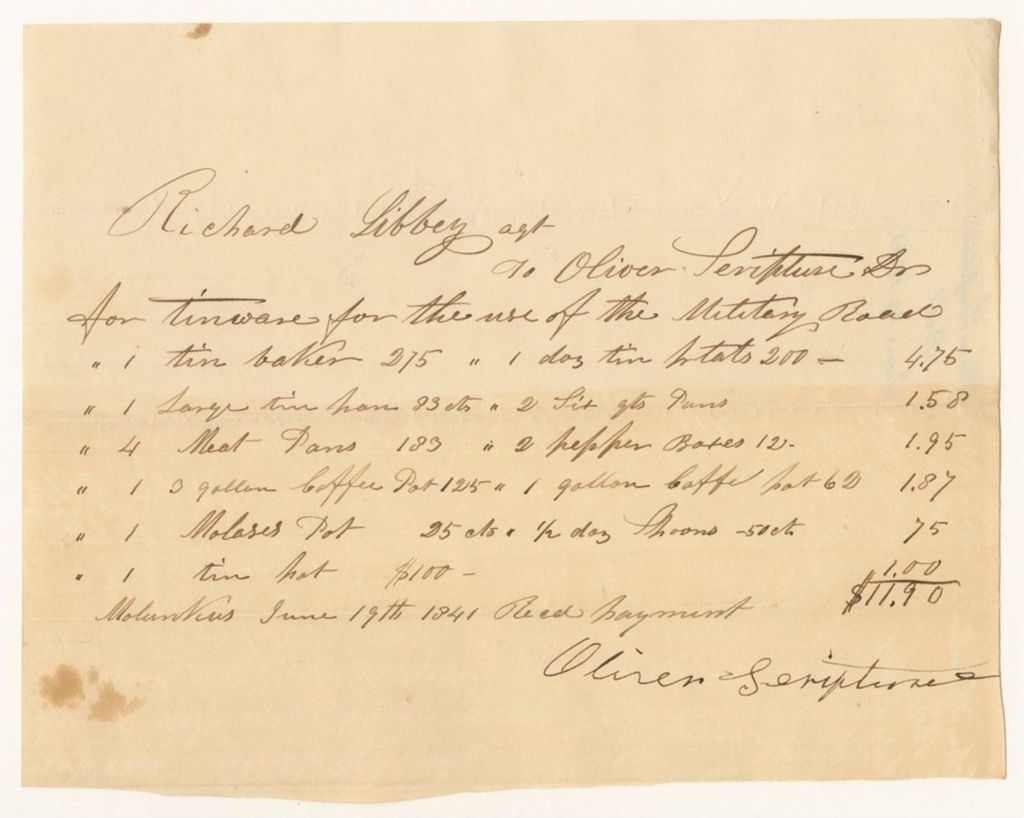 Richard Libbey agt
To Oliver Scripture Dr
for tinware for the use of the Militery Road
" 1 tin baker 275 " 1 doz tin plats 200 — 4.75
" 1 Large tin pan 83 cts " 2 Six qts Pans 1.58
" 4 Meat Pans 183 " 2 pepper Boxes 12- 1.95
" 1 3 gallon Coffee Pot 125 " 1 gallon Coffe pot 62 1.87
" 1 Molases Pot 25 cts " 1/2 doz Spoons -50 ct 75
" 1 tin pot $100 - 1.00
$11.90
Molunkus June 19th 1841 Recd payment
Oliver Scripture